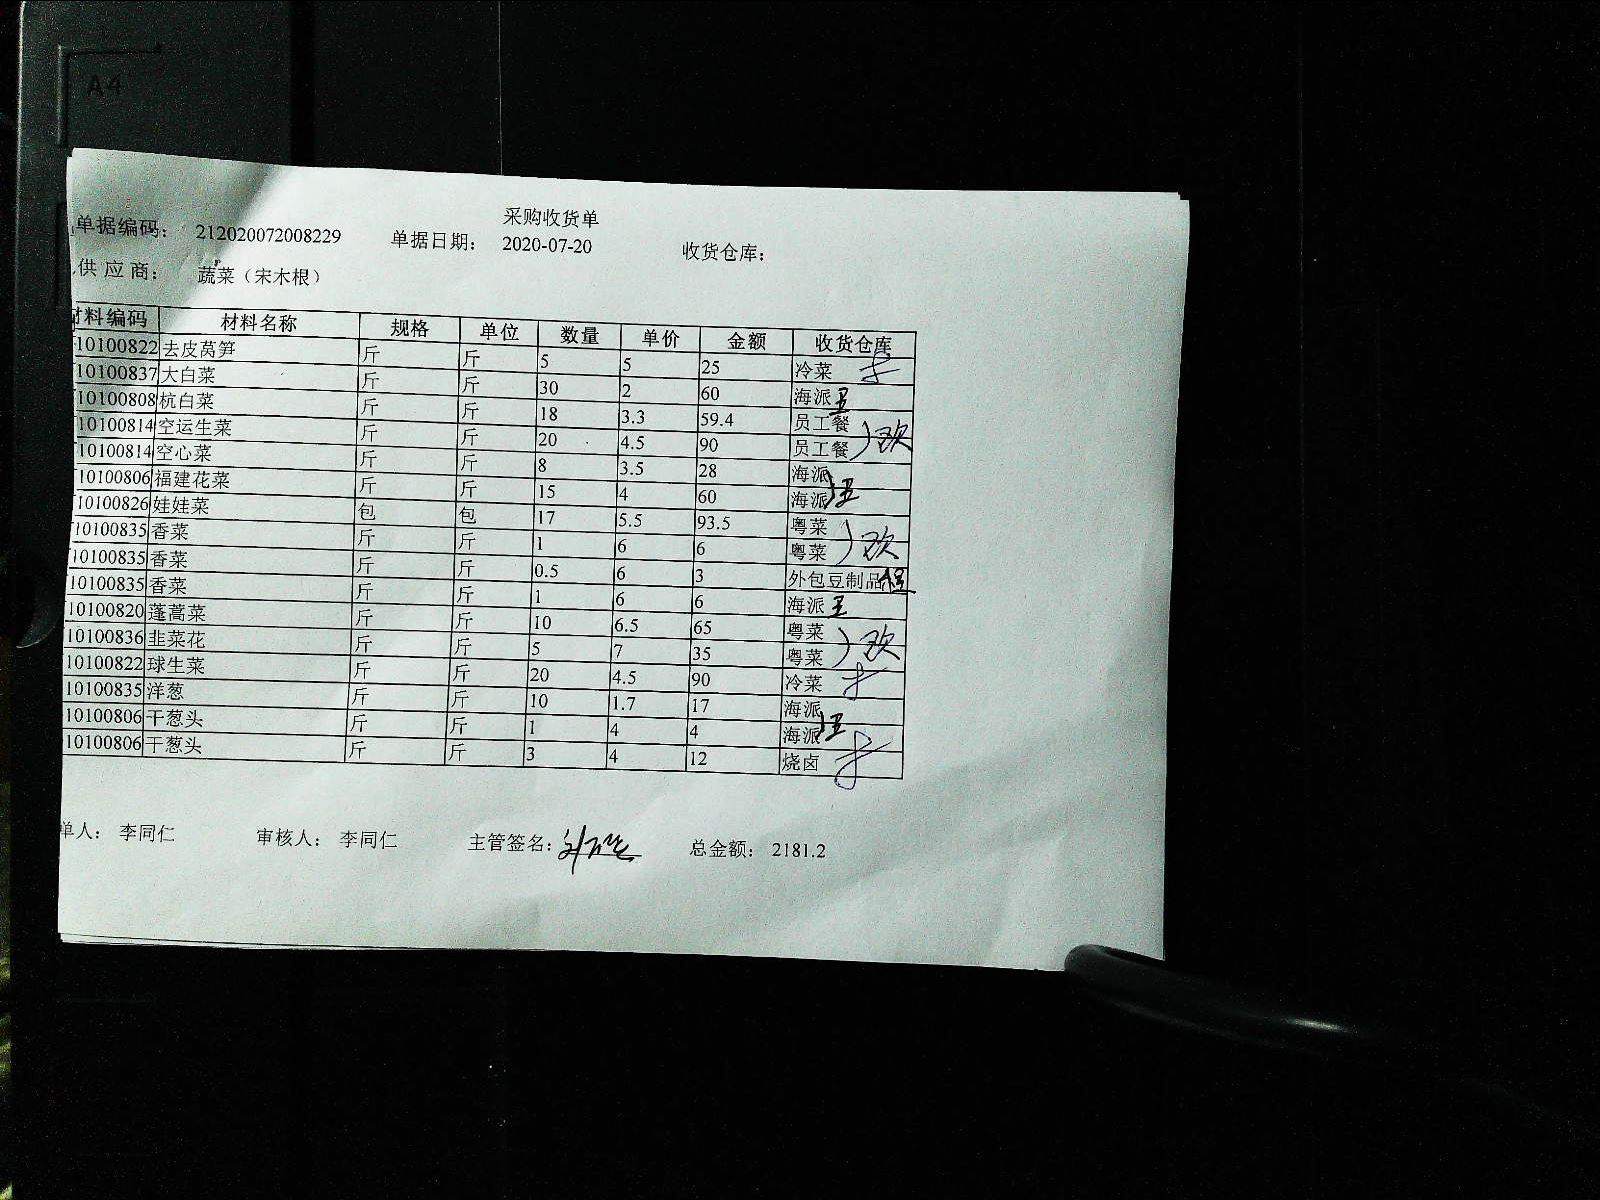 A4
采购收货单
单据编码: 212020072008229 单据日期: 2020-07-20 收货仓库:
供应商: 蔬菜（宋木根）
材料编码 材料名称 规格 单位 数量 单价 金额 收货仓库
10100822 去皮莴笋 斤 斤 5 5 25 冷菜
10100837 大白菜 斤 斤 30 2 60 海派
10100808 杭白菜 斤 斤 18 3.3 59.4 员工餐
10100814 空运生菜 斤 斤 20 4.5 90 员工餐
10100814 空心菜 斤 斤 8 3.5 28 海派
10100806 福建花菜 斤 斤 15 4 60 海派
10100826 娃娃菜 包 包 17 5.5 93.5 粤菜
10100835 香菜 斤 斤 1 6 6 粤菜
10100835 香菜 斤 斤 0.5 6 3 外包豆制品
10100835 香菜 斤 斤 1 6 6 海派
10100820 蓬蒿菜 斤 斤 10 6.5 65 粤菜
10100836 韭菜花 斤 斤 5 7 35 粤菜
10100822 球生菜 斤 斤 20 4.5 90 冷菜
10100835 洋葱 斤 斤 10 1.7 17 海派
10100806 干葱头 斤 斤 1 4 4 海派
10100806 干葱头 斤 斤 3 4 12 烧卤
单人: 李同仁 审核人: 李同仁 主管签名: 总金额: 2181.2